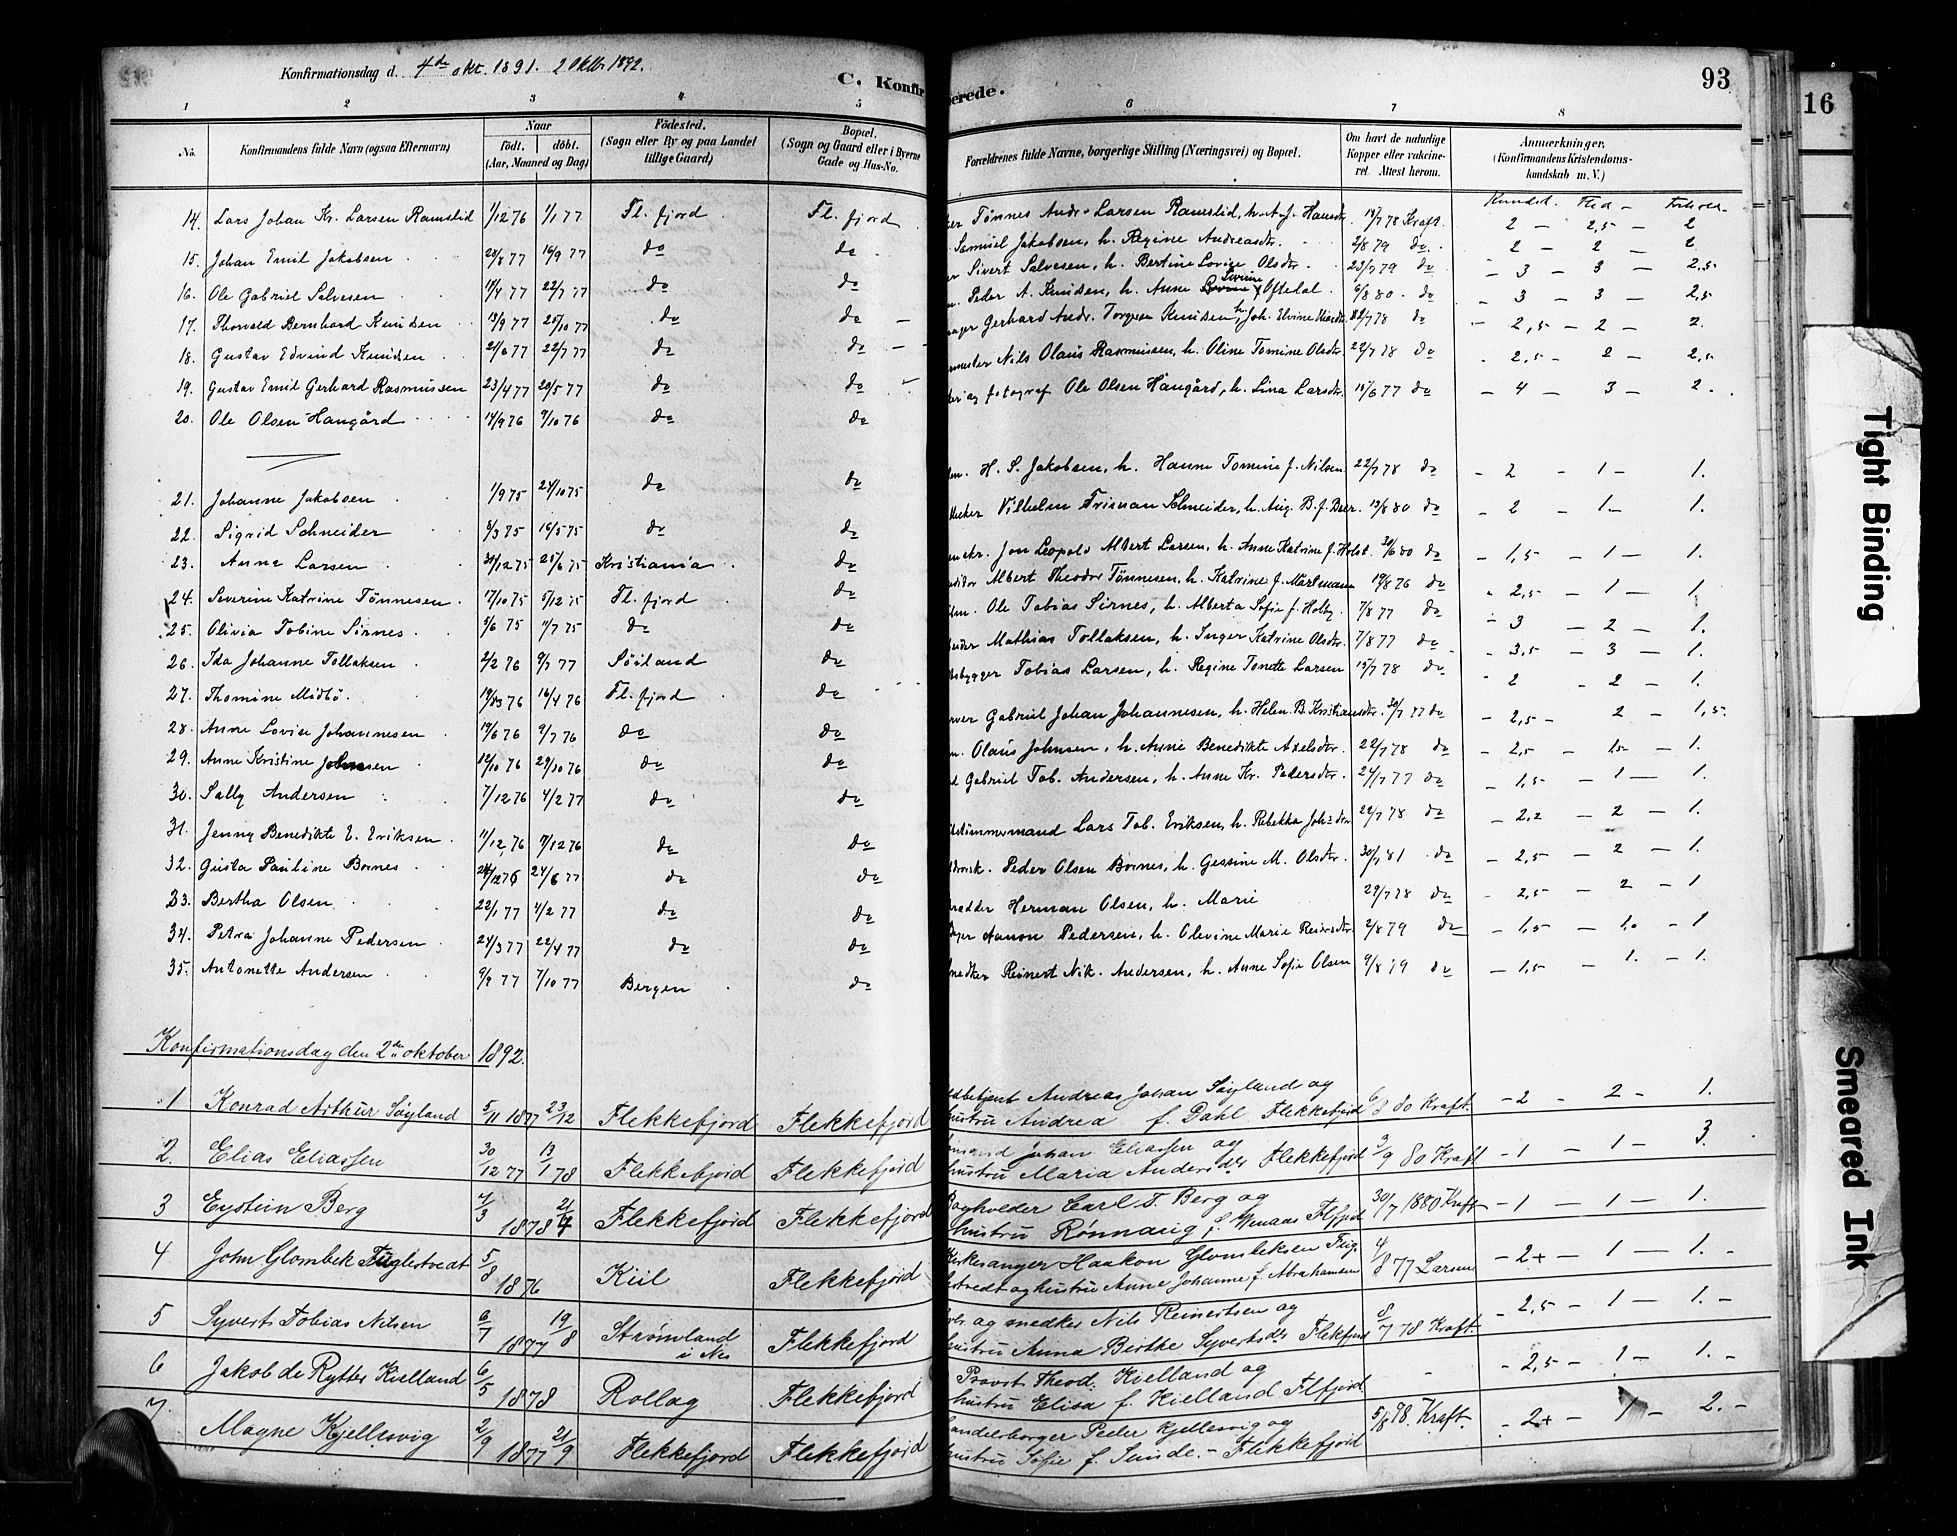 Konfirmationsdag d. 4de okt. 1891. 2 Oktbr 1892.
C. Konfir
erede.
93
16
1 2 3 4 5 6 7 8
No. Konfirmandens fulde Navn (ogsaa Efternavn) Naar født. døbt. (Aar, Maaned og Dag) Fødested. (Sogn eller By og paa Landet tillige Gaard) Bopæl. (Sogn og Gaard eller i Byerne Gade og Hus-No. Forældrenes fulde Navne, borgerlige Stilling (Næringsvei) og Bopæl. Om havt de naturlige Kopper eller vakcineret. Attest herom. Anmærkninger. (Konfirmandens Kristendomskundskab m. V.)
14. Lars Johan Kr. Larsen Ramslid 1/12 76 1/1 77 Fl. fjord Fl. fjord Tønnes Andr. Larsen Ramslid, h. 14/7 78 Kraft. 2 – 2,5 – 2
15. Johan Emil Jakobsen 20/8 77 16/9 77 do do Samuel Jakobsen, h. Regine Andreasdtr. 2/8 79 do. 2 – 2 – 2
16. Ole Gabriel Salvesen 17/4 77 22/7 77 do do Sivert Salvesen, h. Bertine Lovise Olsdtr. 23/7 79 do – 3 – 3 – 2,5
17. Thorvald Bernhard Knudsen 13/9 77 25/10 77 do do – Peder A. Knudsen, h. Anne Sivrine Oftedal. 6/8 80. do – 3 – 3 – 2,5
18. Gustav Edvind Knudsen 21/6 77 22/7 77 do do – Gerhard Andr. Torgersen Knudsen, h. Joh. Elvine 22/7 78 do – 2,5 – 2 – 2.
19. Gustav Emil Gerhard Rasmussen 23/4 77 20/5 77 do do Nils Olaus Rasmussen, h. Oline Tomine Olsdtr 22/7 78 do – 2,5 – 2 – 2,5
20. Ole Olsen Haugård 14/9 76 9/10 76 do do og fotograf Ole Olsen Haugård, h. Lina Larsdtr. 18/6 77 do – 4 – 3 – 2.
21. Johanne Jakobsen 1/9 75 24/10 75 do do H. S. Jakobsen, h. Hanne Tomine f. Nilsen 22/7 78 do – 2 – 1 – 1.
22. Sigrid Schneider 5/3 75 16/5 75 do do Vilhelm Friman Schneider, h. Aug. B. f. Beer. 13/8 80 do – 2 – 1 – 1.
23. Anna Larsen 30/12 75 25/6 75 Kristiania do Jon Leopold Albert Larsen, h. Anne Katrine f. Holst. 30/6 80 do – 1,5 – 1 – 1.
24. Severine Katrine Tönnesen. 17/10 75 5/12 75 Fl. fjord do Albert Theodor Tönnesen, h. Katrine f. Martmann 19/8 76 do – 2,5 – 1 – 1.
25. Olivia Tobine Sirnes. 5/6 75 11/7 75 do do Ole Tobias Sirnes, h. Alberta Sofie f. Holby. 7/8 77 do – 3 – 2 – 1.
26. Ida Johanne Tollaksen 2/2 76 9/7 77 Söiland do Mathias Tollaksen, h. Inger Katrine Olsdtr. 7/8 77 do – 3,5 – 3 – 1.
27. Thomine Midbö. 19/3 76 16/4 76 Fl. fjord do Tobias Larsen, h. Regine Tonette Larsen 15/7 78 do 2 – 2 – 1.
28. Anne Lovise Johannesen 19/6 76 9/7 76 do do Gabriel Johan Johannesen, h. Helen. B. Kristiansdtr. 30/7 77 do – 2,5 – 2 – 1,5.
29. Anne Kristine Johnsen 12/10 76 29/10 76 do do Olaus Johnsen, h. Anne Benedikte Axelsdtr. 22/7 78 do – 2,5 – 1,5 – 1.
30. Sally Andersen 7/12 76 4/2 77 do do Gabriel Tob. Andersen, h. Anne Kr. Pedersdtr. 24/7 77 do – 1,5 – 1 – 1.
31. Jenny Benedikte E. Eriksen 11/12 76 17/12 76 do do tömmermand Lars Tob. Eriksen, h. Rebekka Johsdtr 22/7 78 do – 2,2 – 2 – 1.
32. Gusta Pauline Bornes 24/12 76 24/6 77 do do Peder Olsen Bornes, h. Gessine M. Olsdtr. 30/7 81 do – 2,5 – 2 – 1.
33. Bertha Olsen 22/1 77 4/2 77 do do Herman Olsen, h. Marie 29/7 78 do – 2,5 – 2 – 1
34. Petra Johanne Pedersen 24/3 77 22/4 77 do do Pedersen, h. Olevine Marie Reinrsdtr 2/8 79 do – 1,5 – 1,0 – 1
35. Antonette Andersen 9/9 77 7/10 77 Bergen do Reinert Nik. Andersen, h. Anne Sofie Olsen 9/8 79 do – 1,5 – 1. – 1.
Konfirmationsdag den 2den oktober 1892.
1 Konrad Arthur Søyland 5/11 1877 23/12 Flekkefjord Flekkefjord Andreas Johan Søyland og hustru Andrea f. Dahl Flekkefjord 6/8 80 Kraft. – 2 – 2 – 1.
2. Elias Eliassen 30/12 77 13/1 78 Flekkefjord Flekkefjord Johan Eliassen og hustru Maria Andersdtr Flekkefjord 3/9 80 Kraft – 1 – 1 – 3.
3 Eystein Berg 4/3 1878 21/4 Flekkefjord Flekkefjord Bogholder Carl T. Berg og hustru Rønnaug f. Wenaas Flfjord 30/7 1880 Kraft – 1 – 1 – 1.
4 John Glombek Fuglestvedt 5/8 1876 Kiil Flekkefjord Kirkesanger Haakon Glombeksen Fuglestvedt og hustru Anne Johanne f. Abrahamsen 4/8 77 Larsen – 2+ – 1 – 1. –
5 Syvert Tobias Nilsen 6/7 1877 19/8 Strømland i Nes Flekkefjord og snedker Nils Reinertsen og hustru Anna Birthe Syvertsdtr Flekkefjord 8/7 78 Kraft. – 2,5 – 1 – 1. –
6 Jakob de Rytter Kielland 6/5 1878 Rollag Flekkefjord Provst Theod. Kielland og hustru Elisa f. Kielland Flfjord – – 2,5 – 1 – 1. –
7. Magne Kjellesvig 2/9 1877 21/9 Flekkefjord Flekkefjord Peder Kjellesvig og hustru Sofie f. Sunde. – Flekkefjord 5/8 78. Kraft. – 2+ – 1 – 2. –
Tight Binding
Smeared Ink